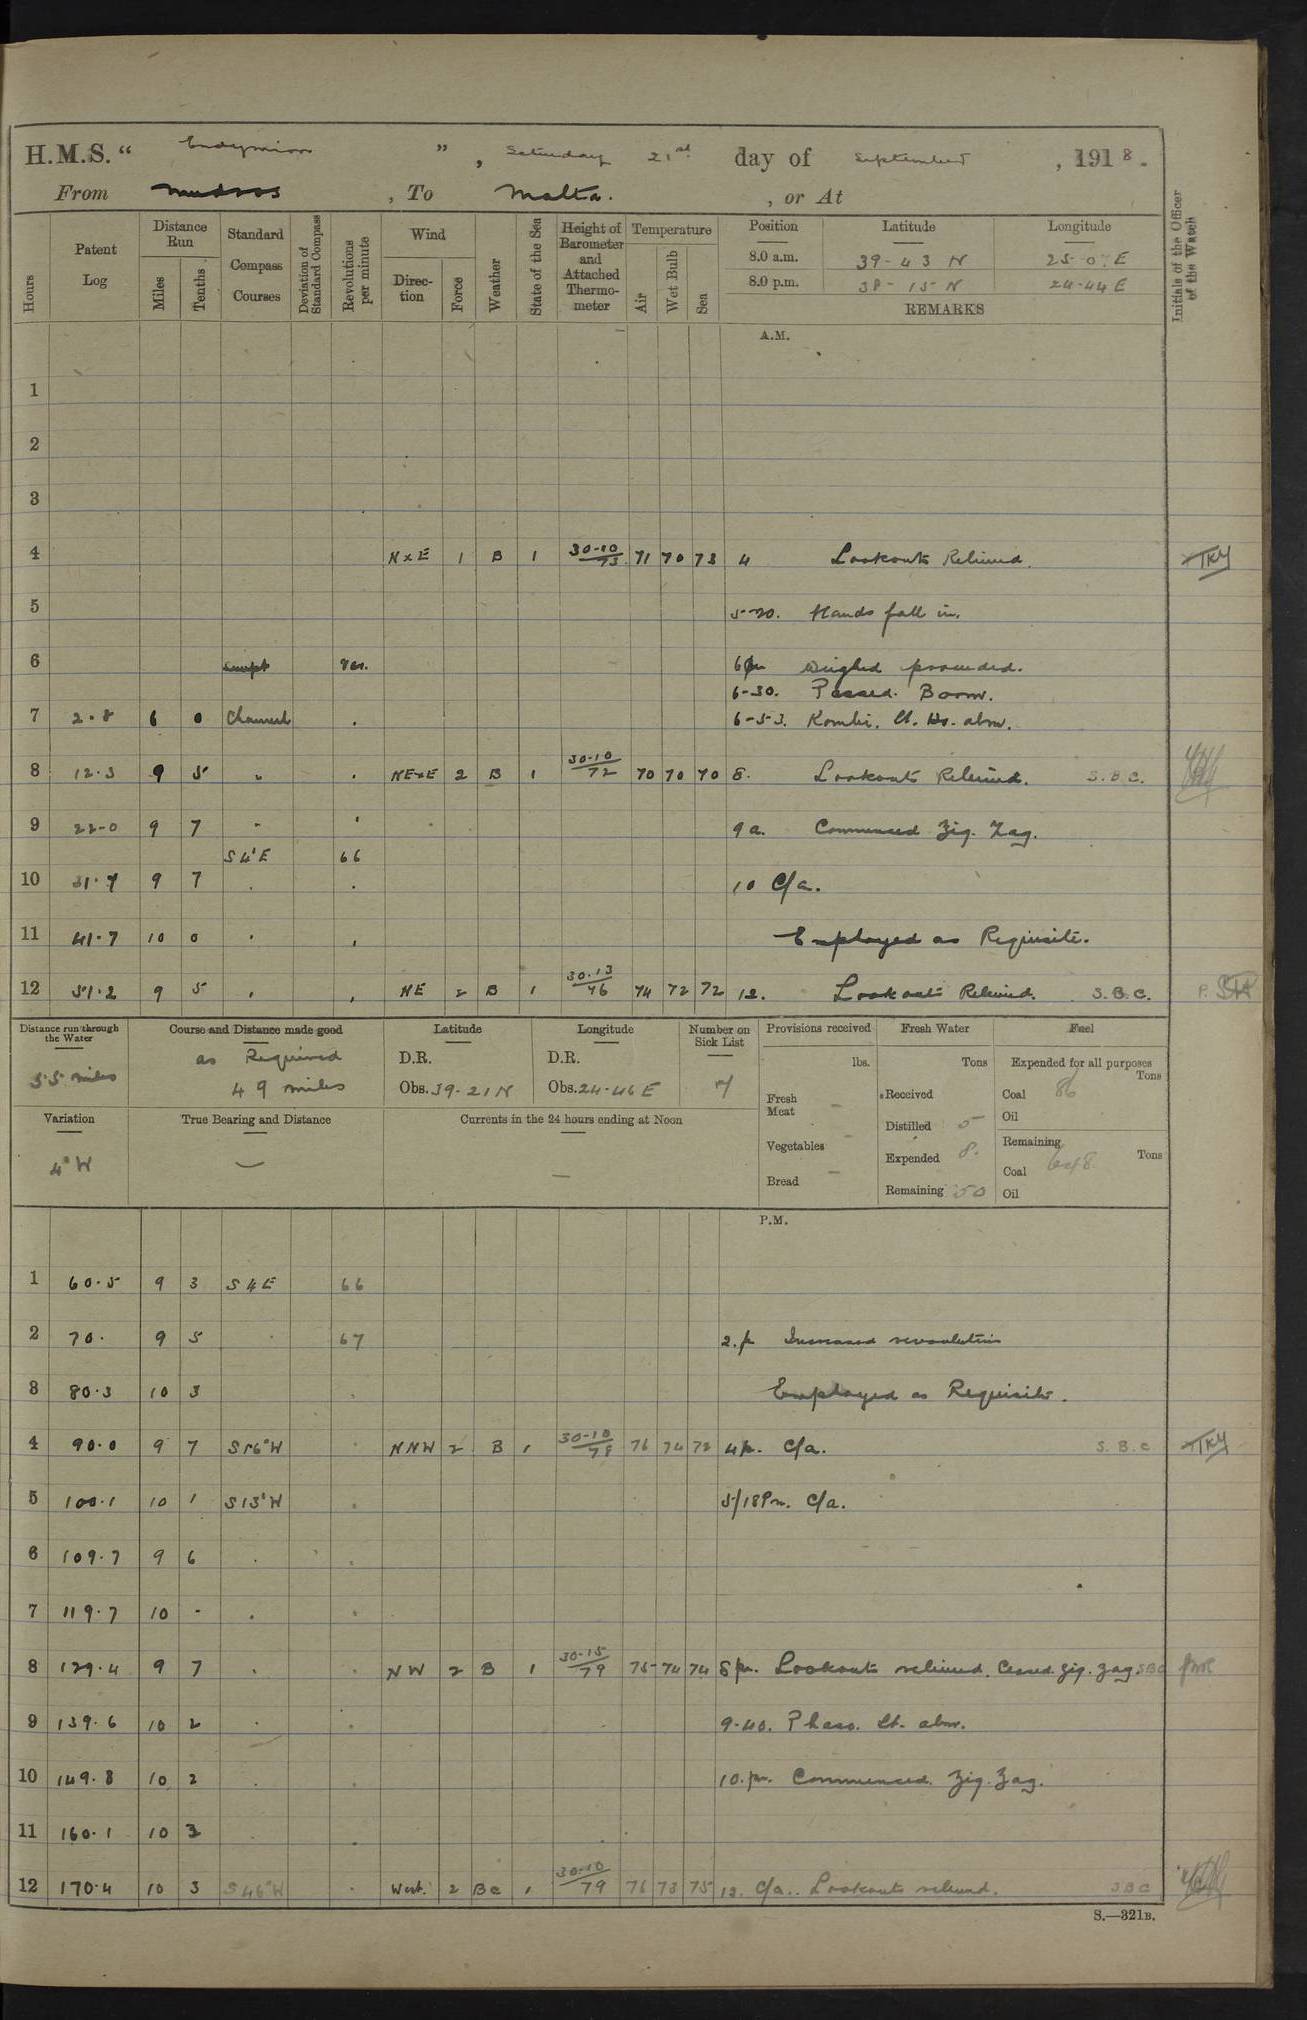 H.M.S. “ Endymion ” , Saturday 21st day of September , 1918.
From Mudros , To Malta. , or At
Hours
Patent Log
Distance Run
Miles
Tenths
Standard Compass Courses
Deviation of Standard Compass
Revolutions per minute
Wind
Direction
Force
Weather
State of the Sea
Height of Barometer and Attached Thermometer
Temperature
Air
Wet Bulb
Sea
Position Latitude Longitude
8.0 a.m. 39-43 N 25-0 E
8.0 p.m. 38-15 N 24-44 E
REMARKS
Initials of the Officer of the Watch
A.M.
1
2
3
4 N x E 1 B 1 30-10/73 71 70 73 4 Lookouts Relieved. TKY
5 5-20. Hands fall in.
6 Var. Weighed proceeded.
6-30. Passed Boom.
7 2.8 6 0 Channel . 6-53. Kombi. Lt. Ho. abm.
8 12.3 9 5 " . NExE 2 B 1 30-10/72 70 70 70 8. Lookouts Relieved. S.B.C.
9 22-0 9 7 " ' 9 a. Commenced Zig. Zag.
S 4° E 66
10 31.7 9 7 . . 10 C/a.
11 41.7 10 0 . . Employed as Requisite.
12 51.2 9 5 . . NE 2 B 1 30.13/76 74 72 72 12. Lookouts Relieved. S.B.C.
Distance run through the Water
55 miles
Course and Distance made good
as Required
49 miles
Latitude
D.R.
Obs. 39-21 N
Longitude
D.R.
Obs. 24-46 E
Number on Sick List
7
Provisions received
lbs.
Fresh Meat –
Vegetables –
Bread –
Fresh Water
Tons
Received
Distilled 5
Expended 8.
Remaining 50
Fuel
Expended for all purposes
Tons
Coal 86
Oil
Remaining
Tons
Coal
Oil
Variation
4° W
True Bearing and Distance
—
Currents in the 24 hours ending at Noon
—
P.M.
1 60.5 9 3 S 4 E 66
2 70. 9 5 . 67 2.p Increased revolutions
3 80.3 10 3 . Employed as Requisite.
4 90.0 9 7 S 16° W . NNW 2 B 1 30-10/78 76 74 72 4p. C/a. S.B.C TKY
5 100.1 10 1 S 13° W . 5/18 Pm. C/a.
6 109.7 9 6 . .
7 119.7 10 - . .
8 129.4 9 7 . . NW 2 B 1 30-15/79 75 74 74 8 pm. Lookouts relieved. Ceased Zig. Zag. SBC
9 139.6 10 2 . . 9-40. Phaso. Lt. abm.
10 149.8 10 2 . . 10. pm. Commenced Zig. Zag.
11 160.1 10 3 . .
12 170.4 10 3 S 46° W . West. 2 Bc 1 30-10/79 76 73 75 12. C/a.. Lookouts relieved. SBC
S.—321B.